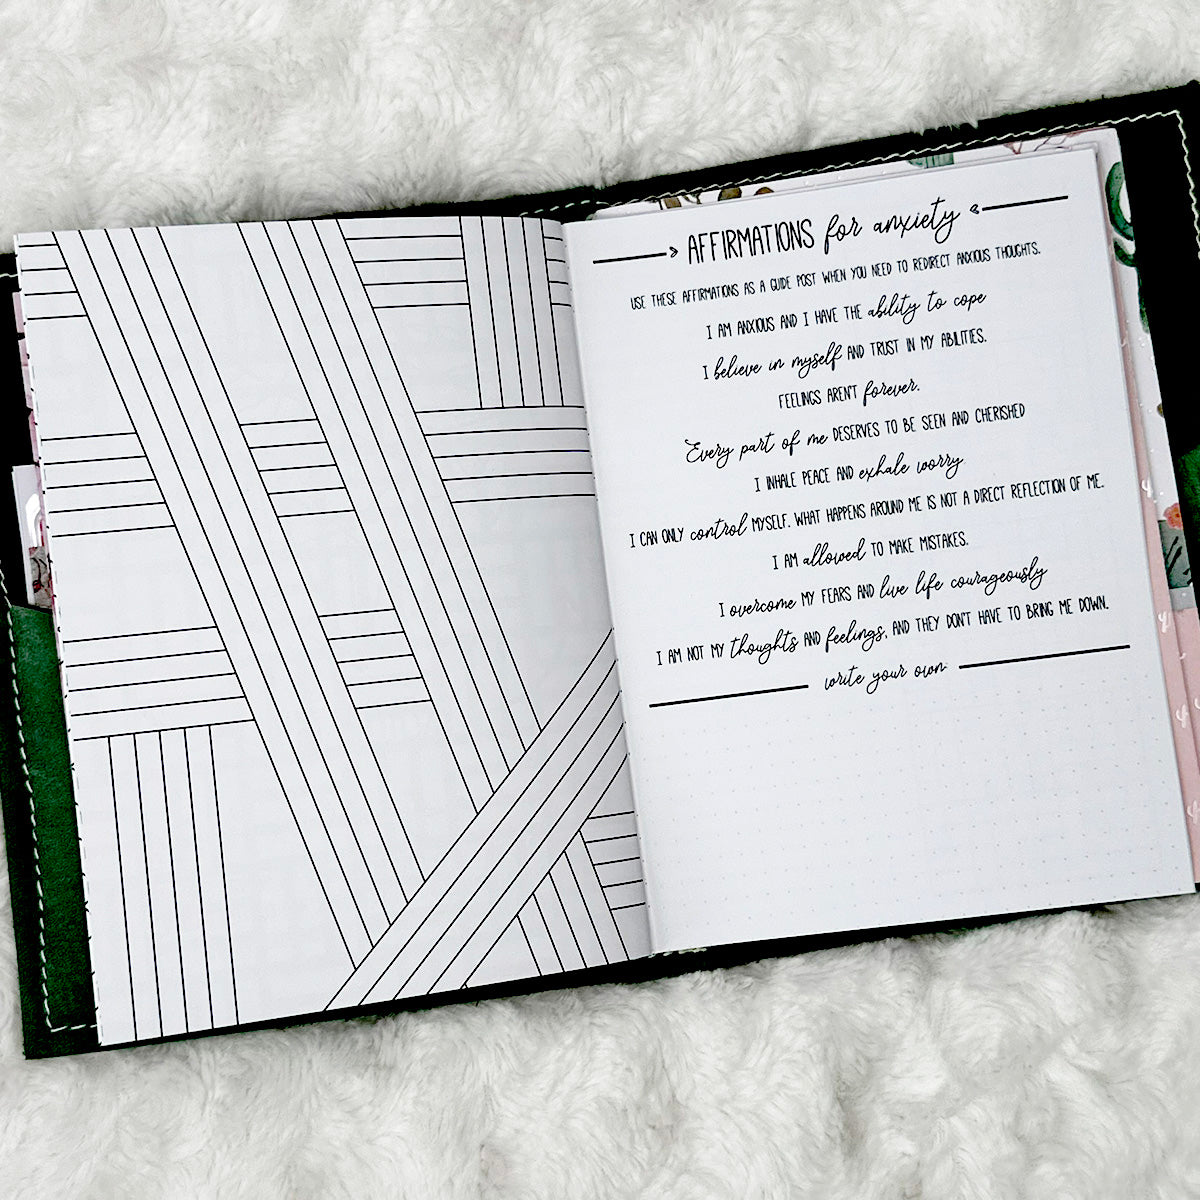 AFFIRMATIONS for anxiety
USE THESE AFFIRMATIONS AS A GUIDE POST WHEN YOU NEED TO REDIRECT ANXIOUS THOUGHTS.
I AM ANXIOUS AND I HAVE THE ability to cope
I believe in myself AND TRUST IN MY ABILITIES.
FEELINGS AREN'T forever.
Every part of me DESERVES TO BE SEEN AND CHERISHED
I INHALE PEACE AND exhale worry
I CAN ONLY control MYSELF. WHAT HAPPENS AROUND ME IS NOT A DIRECT REFLECTION OF ME.
I AM allowed TO MAKE MISTAKES.
I overcome MY FEARS AND live life courageously
I AM NOT MY thoughts AND feelings, AND THEY DON'T HAVE TO BRING ME DOWN.
write your own: